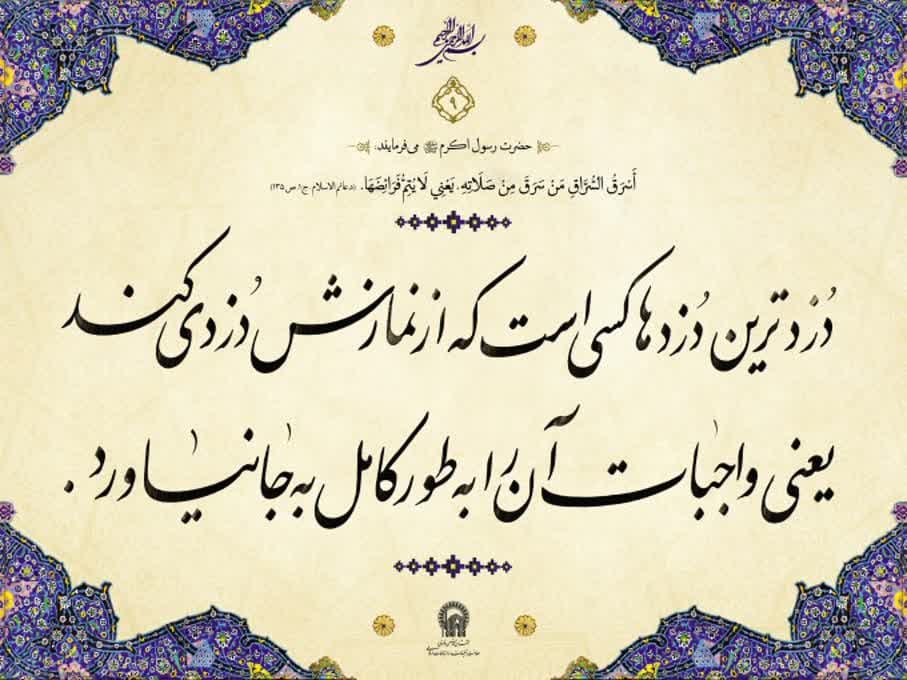 بسم الله الرحمن الرحیم
۹
حضرت رسول اکرم ﷺ می‌فرمایند:
أَسْرَقُ السُّرَّاقِ مَنْ سَرَقَ مِنْ صَلَاتِهِ، يَعْنِي لَا يُتِمُّ فَرَائِضَهَا. (دعائم الاسلام، ج۱، ص ۱۳۵)
دُزدترین دُزدها کسی است که از نمازش دُزدی کند
یعنی واجبات آن را به طور کامل به جا نیاورد.